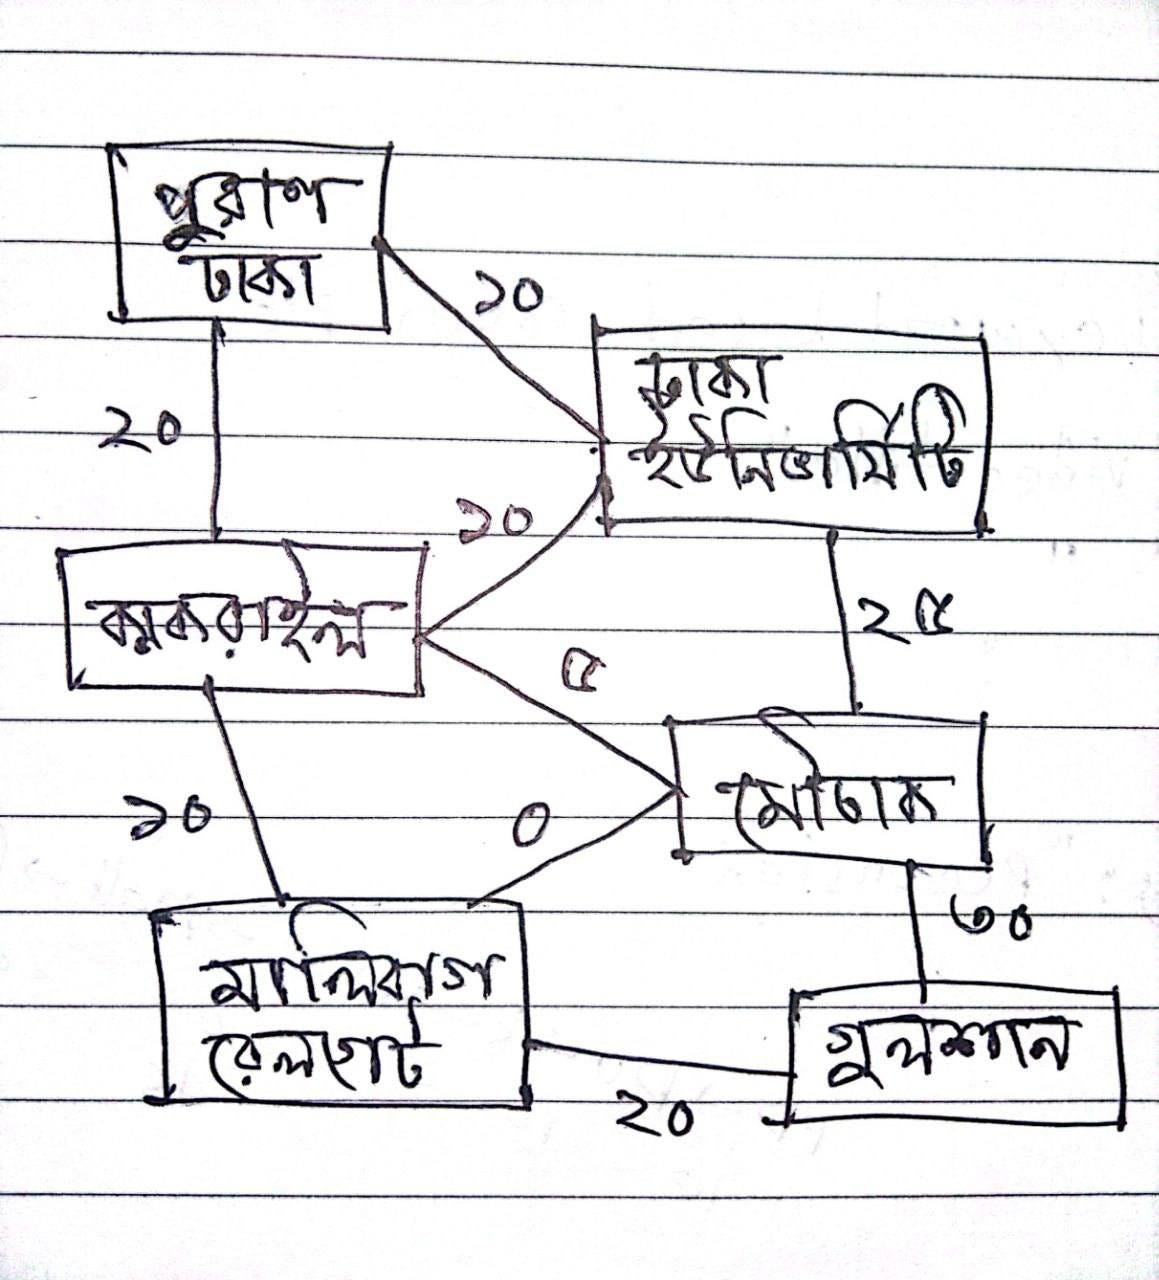 পুরাণ
ঢাকা
১০
ঢাকা
ইউনিভার্সিটি
২০
১০
কাকরাইল
২৫
৫
মৌচাক
১০
০
৩০
মালিবাগ
রেলগেট
গুলশান
২০